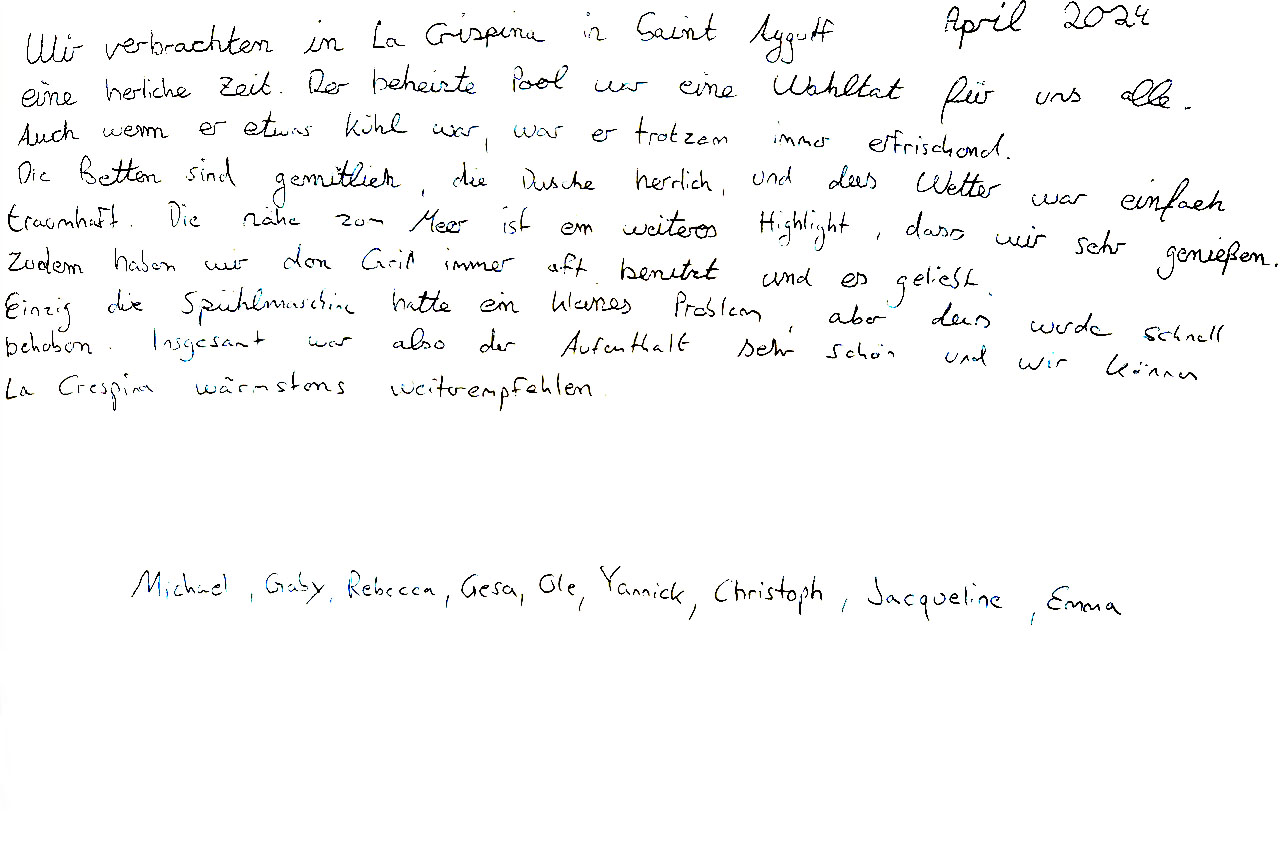 Wir verbrachten in La Crispina in Saint Aygulf April 2024
eine herliche Zeit. Der beheizte Pool war eine Wohltat für uns alle.
Auch wenn er etwas kühl war, war er trotzem immer erfrischend.
Die Betten sind gemütlich, die Dusche herrlich, und das Wetter war einfach
traumhaft. Die nähe zum Meer ist ein weiteres Highlight, dass wir sehr genießen.
Zudem haben wir den Grill immer oft benutzt und es geliebt.
Einzig die Spühlmaschine hatte ein kleines Problem, aber das wurde schnell
behoben. Insgesamt war also der Aufenthalt sehr schön und wir können
La Crespina wärmstens weiterempfehlen.
Michael, Gaby, Rebecca, Gesa, Ole, Yannick, Christoph, Jacqueline, Emma